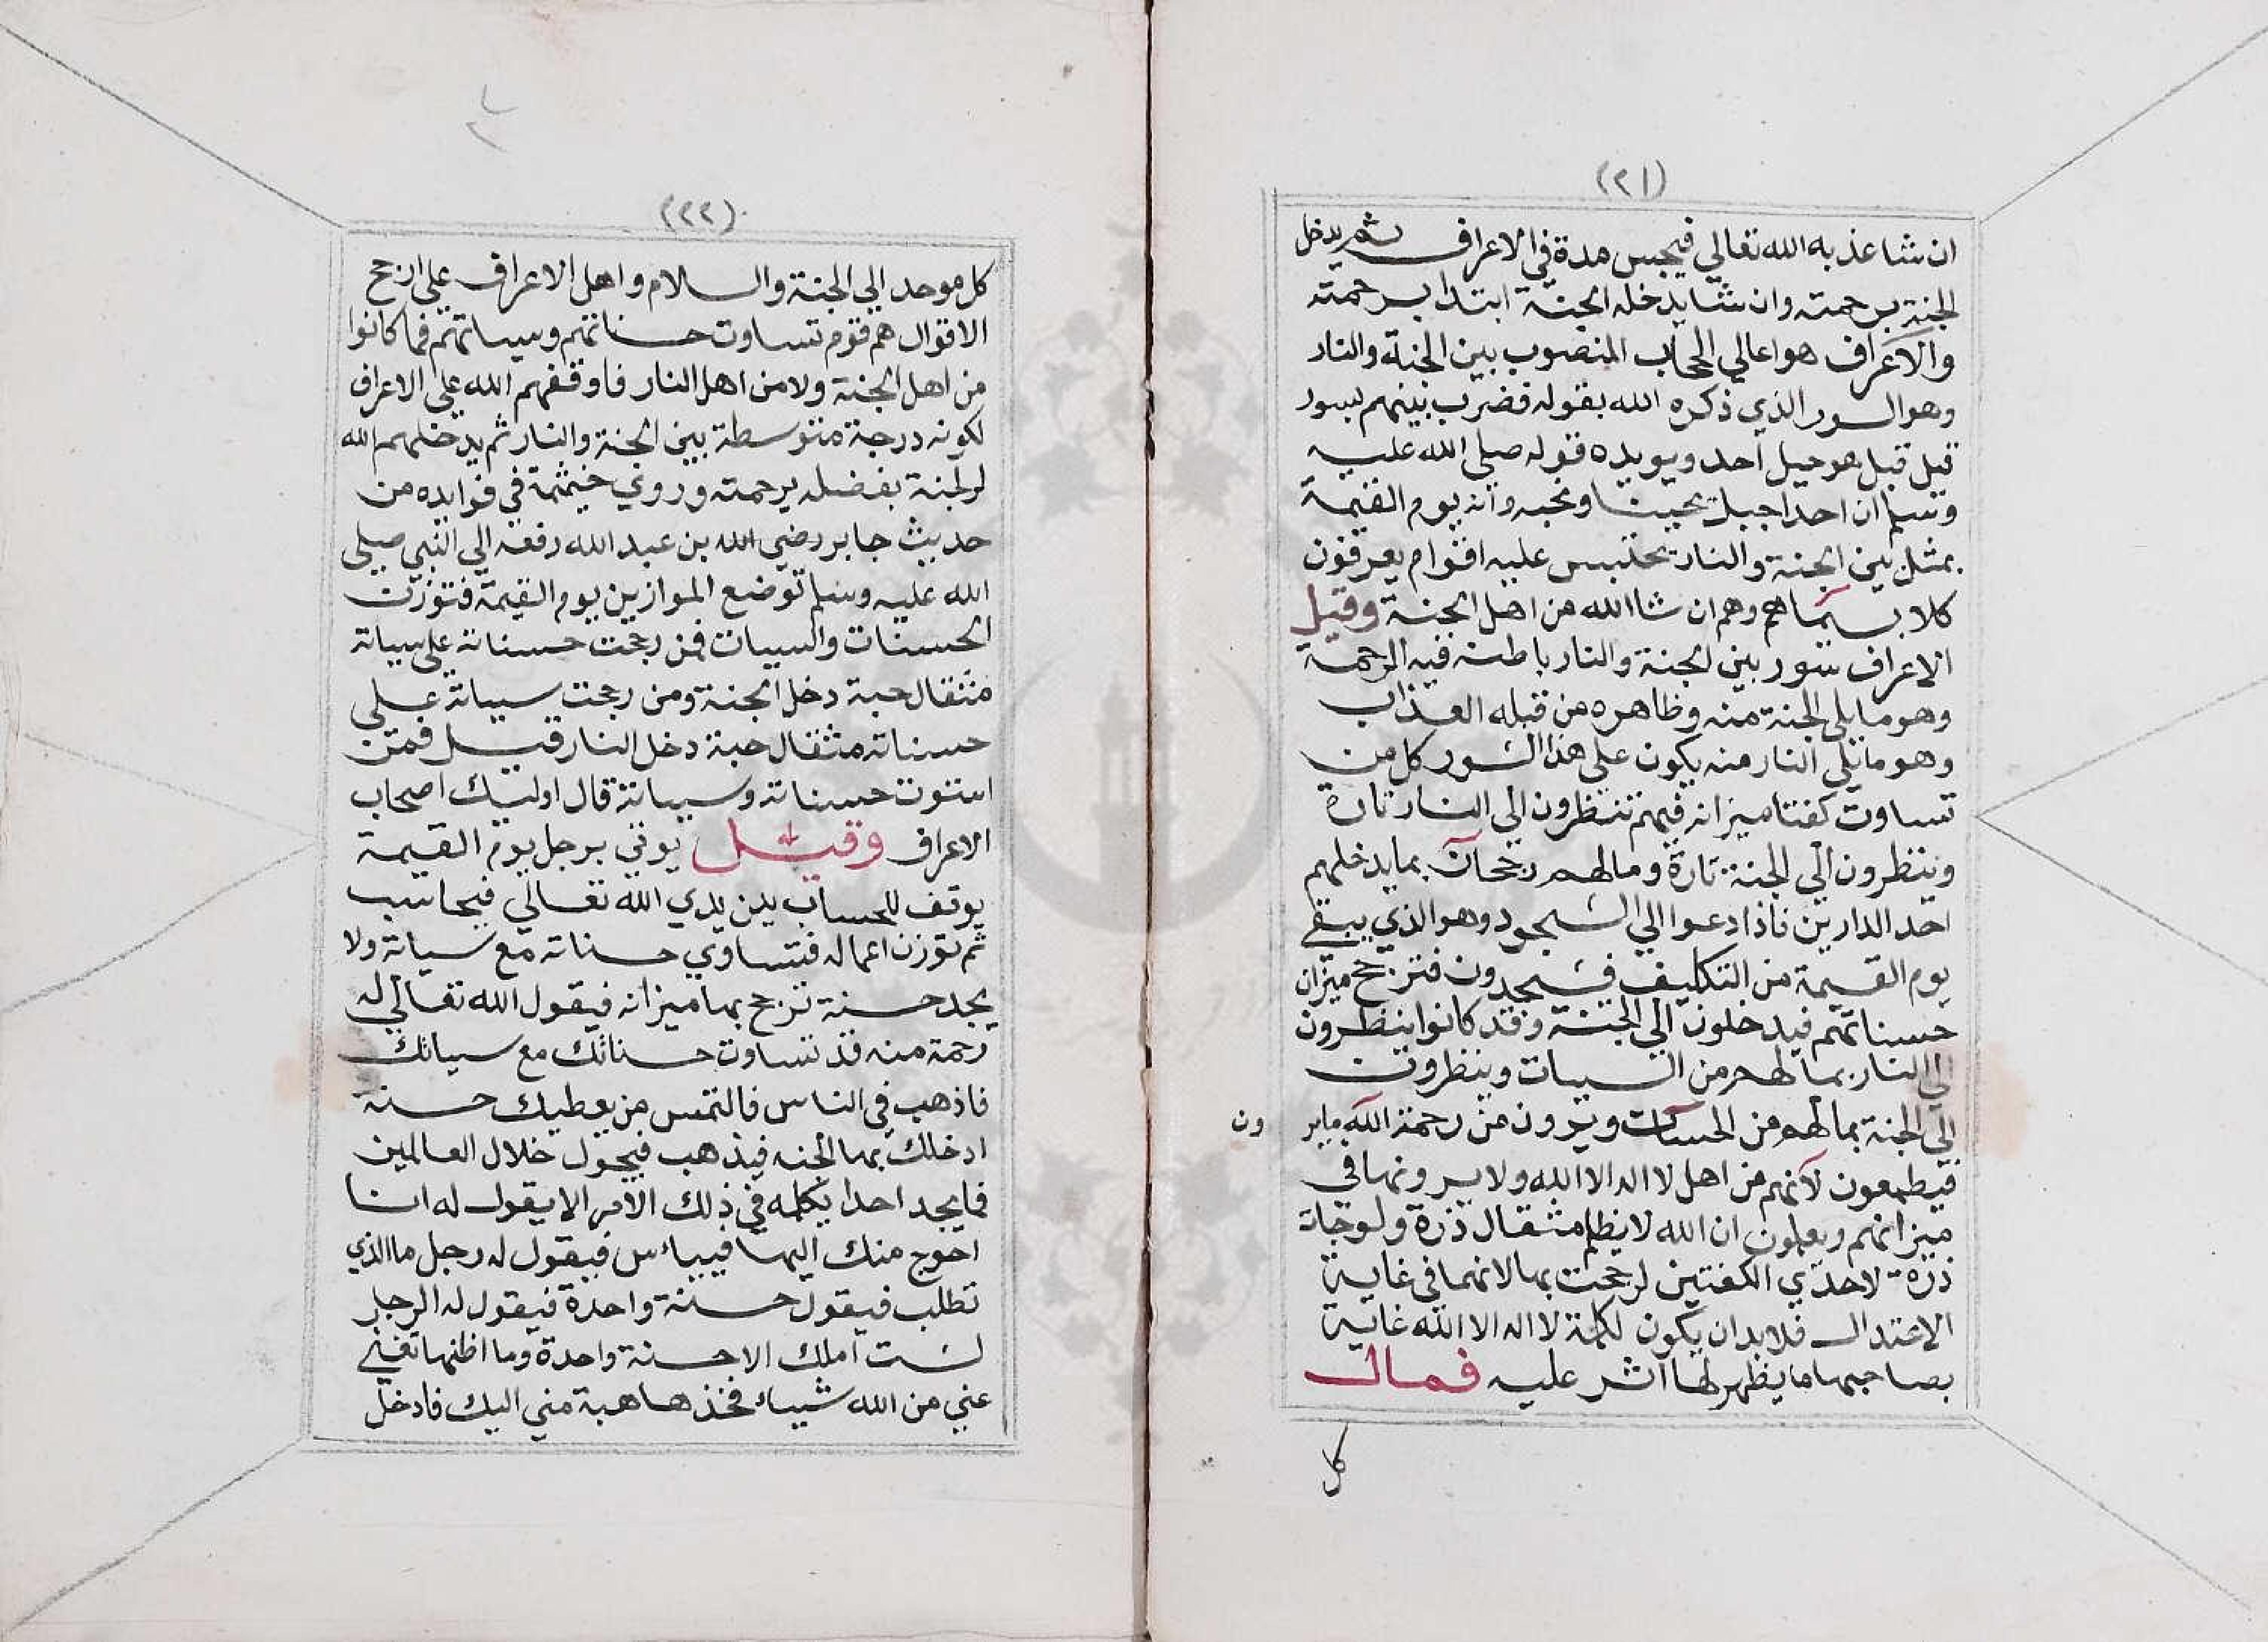 (٢١)
ان شا عذبه الله تعالي فيحبس مدة في الاعراف ثم يدخل
الجنة برحمته وان شا يدخله الجنة ابتدا برحمته
والاعراف هو اعالي الحجاب المنصوب بين الجنة والنار
وهو السور الذي ذكره الله بقوله فضرب بينهم بسور
قيل قيل هو جبل احد ويويده قوله صلي الله عليه
وسلم ان احدا جبل يحبنا ونحبه وانه يوم القيمة
يمثل بين الجنة والنار يحتبس عليه اقوام يعرفون
كلا بسيماهم وهم ان شا الله من اهل الجنة وقيل
الاعراف سور بين الجنة والنار باطنه فيه الرحمة
وهو ما يلي الجنة منه وظاهره من قبله العذاب
وهو ما يلي النار منه يكون علي هذا السور كل من
تساوت كفتا ميزانه فيهم ينظرون الي النار تارة
وينظرون الي الجنة تارة وما لهم رجحان بما يدخلهم
احد الدارين فاذا دعوا الي السجود وهو الذي يبقي
يوم القيمة من التكليف فيسجدون فترجح ميزان
حسناتهم فيدخلون الي الجنة وقد كانوا ينظرون
الي النار بما لهم من السيات وينظرون
الي الجنة بما لهم من الحسنات ويرون من رحمة الله ما ير ون
فيطمعون لانهم من اهل لا اله الا الله ولا يرونها في
ميزانهم ويعلمون ان الله لا يظلم مثقال ذرة ولو جات
ذرة لاحدي الكفتين لرجحت بها لانهما في غاية
الاعتدال فلا بد ان يكون لكلمة لا اله الا الله غاية
بصاحبها ما يظهر لها اثر عليه فمال
كل
(٢٢)
كل موحد الي الجنة والسلام واهل الاعراف علي ارجح
الاقوال هم قوم تساوت حسناتهم وسياتهم فما كانوا
من اهل الجنة ولا من اهل النار فاوقفهم الله علي الاعراف
لكونه درجة متوسطة بين الجنة والنار ثم يدخلهم الله
لرلجنة بفضله برحمته وروي خيثمة في فوايده من
حديث جابر رضي الله بن عبد الله رفعه الي النبي صلي
الله عليه وسلم توضع الموازين يوم القيمة فتوزن
الحسنات والسيات فمن رجحت حسناته علي سياته
مثقال حبة دخل الجنة ومن رجحت سياته علي
حسناته مثقال حبة دخل النار قيل فمن
استوت حسناته وسياته قال اوليك اصحاب
الاعراف وقيل يوتي برجل يوم القيمة
يوقف للحساب بين يدي الله تعالي فيحاسب
ثم توزن اعماله فتتساوي حسناته مع سياته ولا
يجد حسنة ترجح بها ميزانه فيقول الله تعالي له
رحمة منه قد تساوت حسناتك مع سياتك
فاذهب في الناس فالتمس من يعطيك حسنة
ادخلك بها الجنه فيذهب فيجول خلال العالمين
فما يجد احدا يكلمه في ذلك الامر الا يقول له انا
احوج منك اليها فيياس فيقول له رجل ما الذي
تطلب فيقول حسنة واحدة فيقول له الرجل
لست املك الا حسنة واحدة وما اظنها تغني
عني من الله شياء فخذها هبة مني اليك فادخل